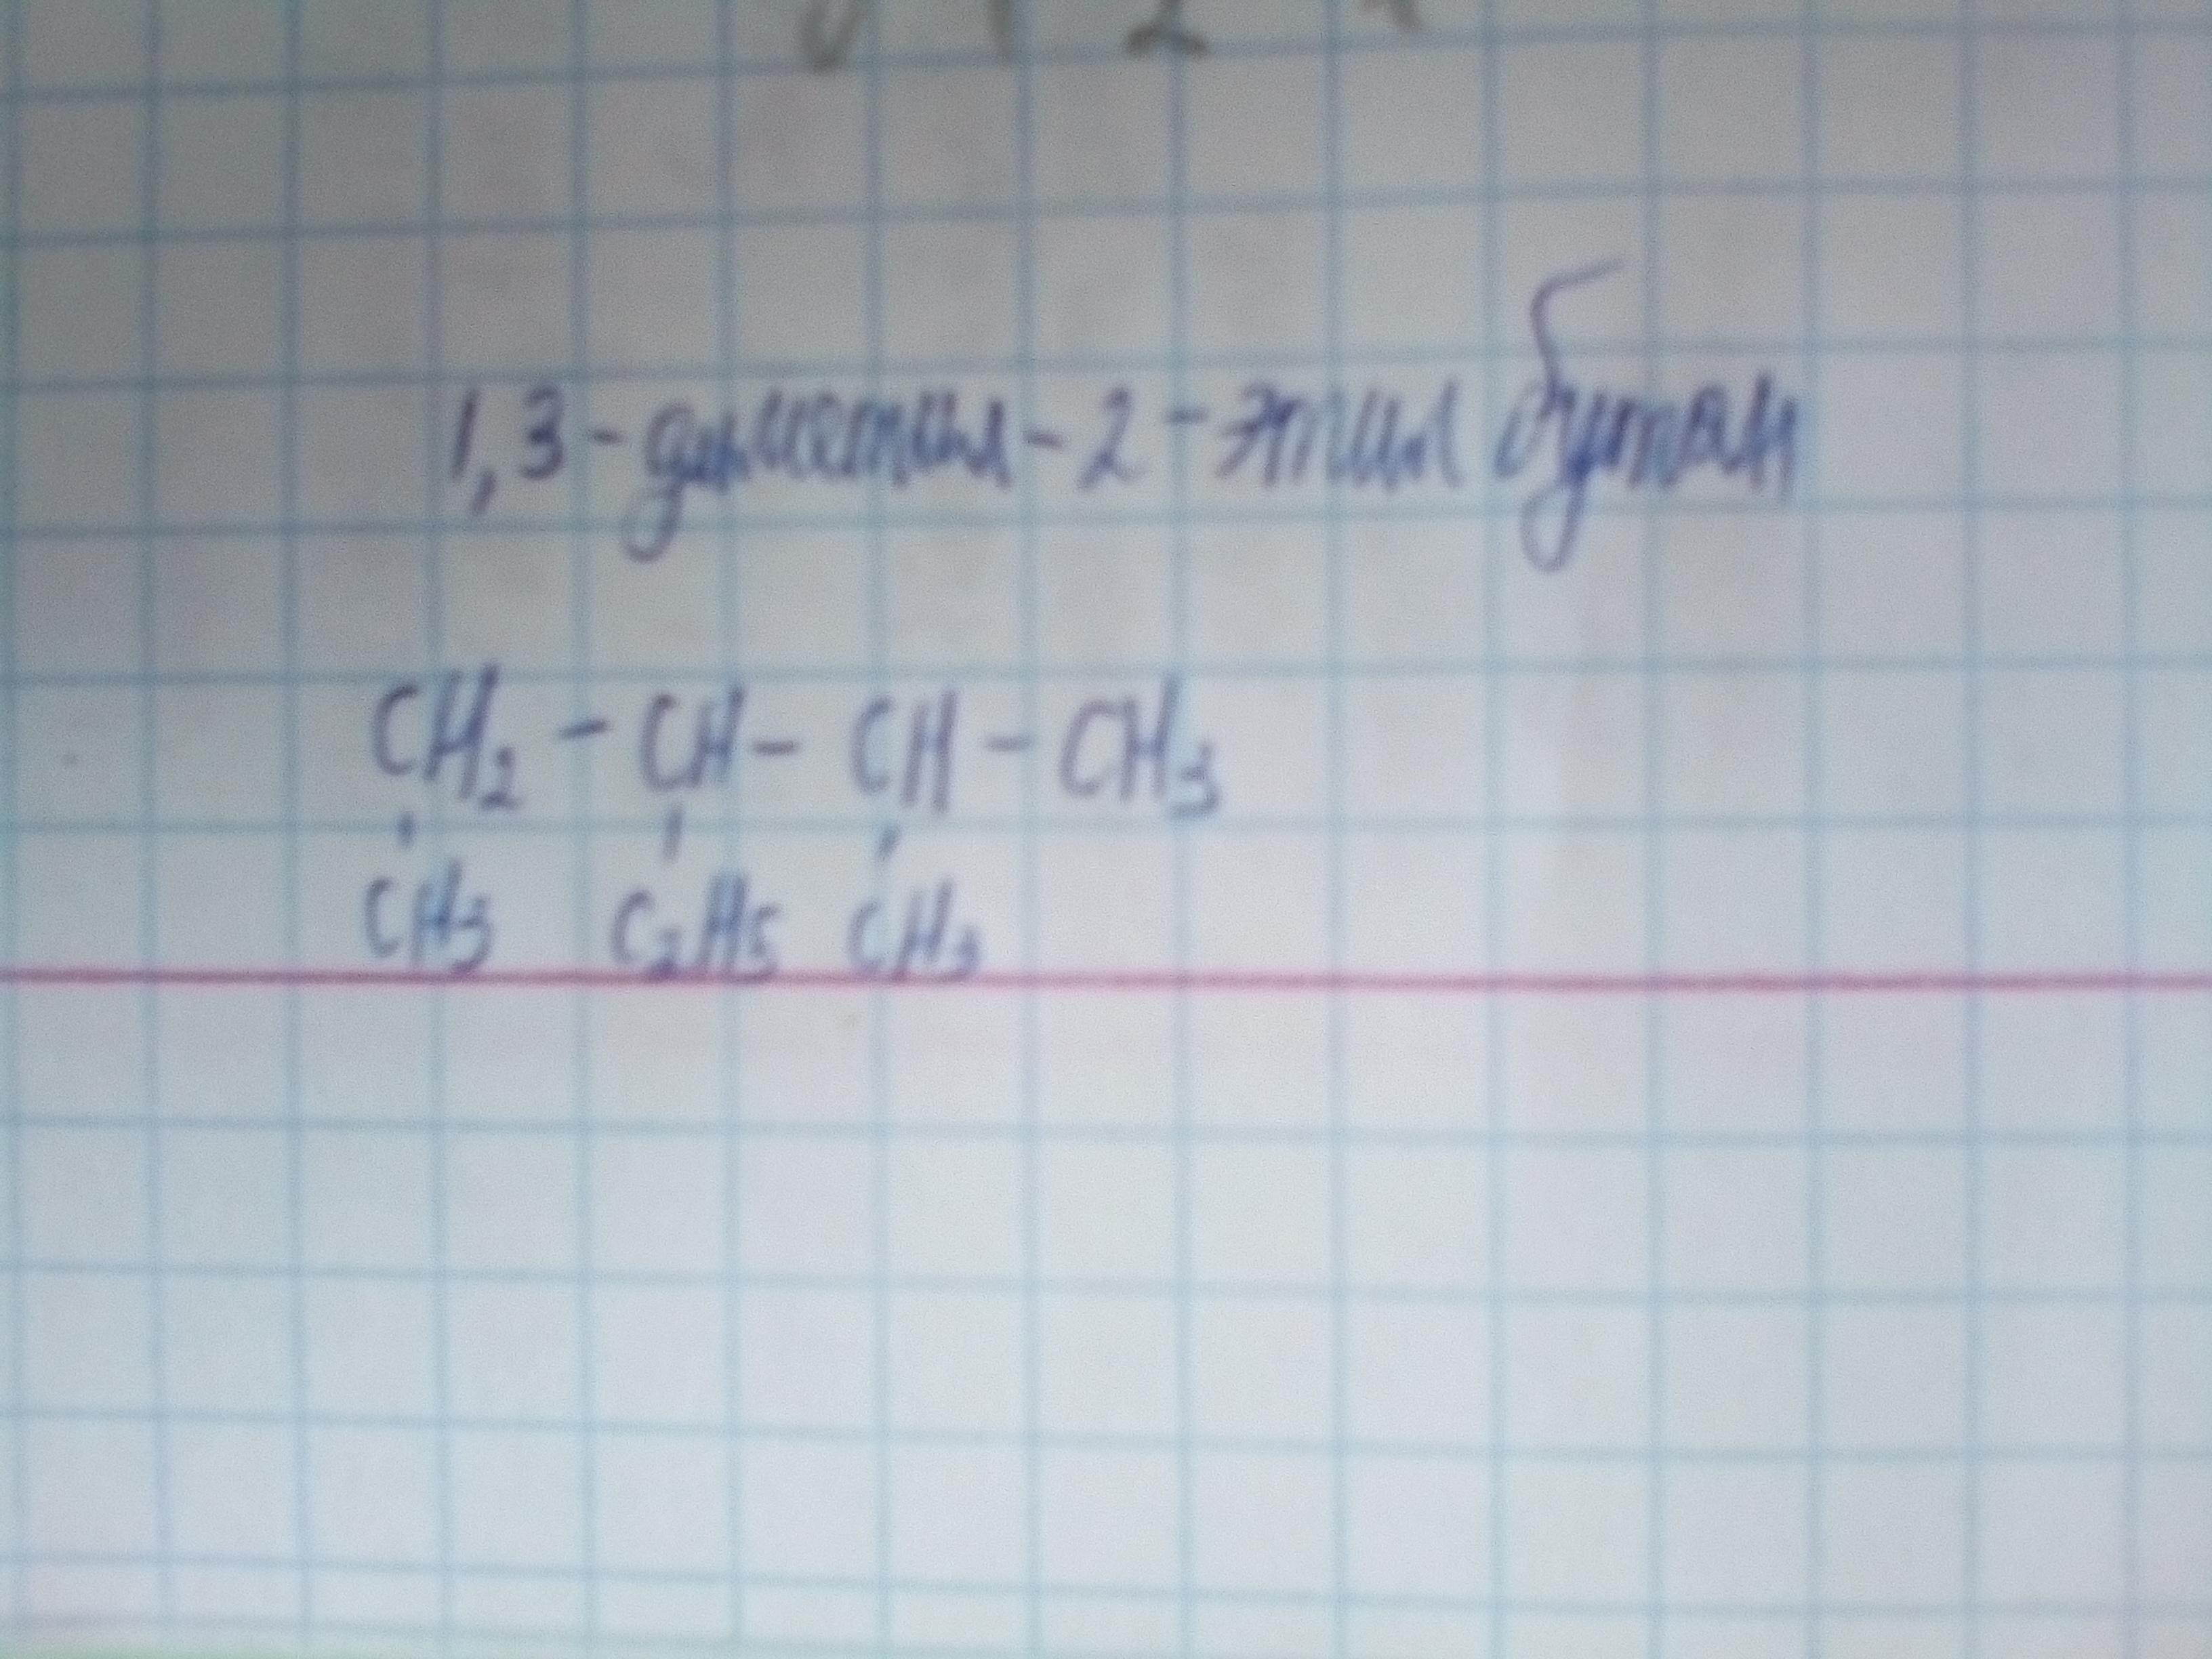 1,3-диметил-2-этил бутан
CH₂ - CH - CH - CH₃
CH₃ C₂H₅ CH₃